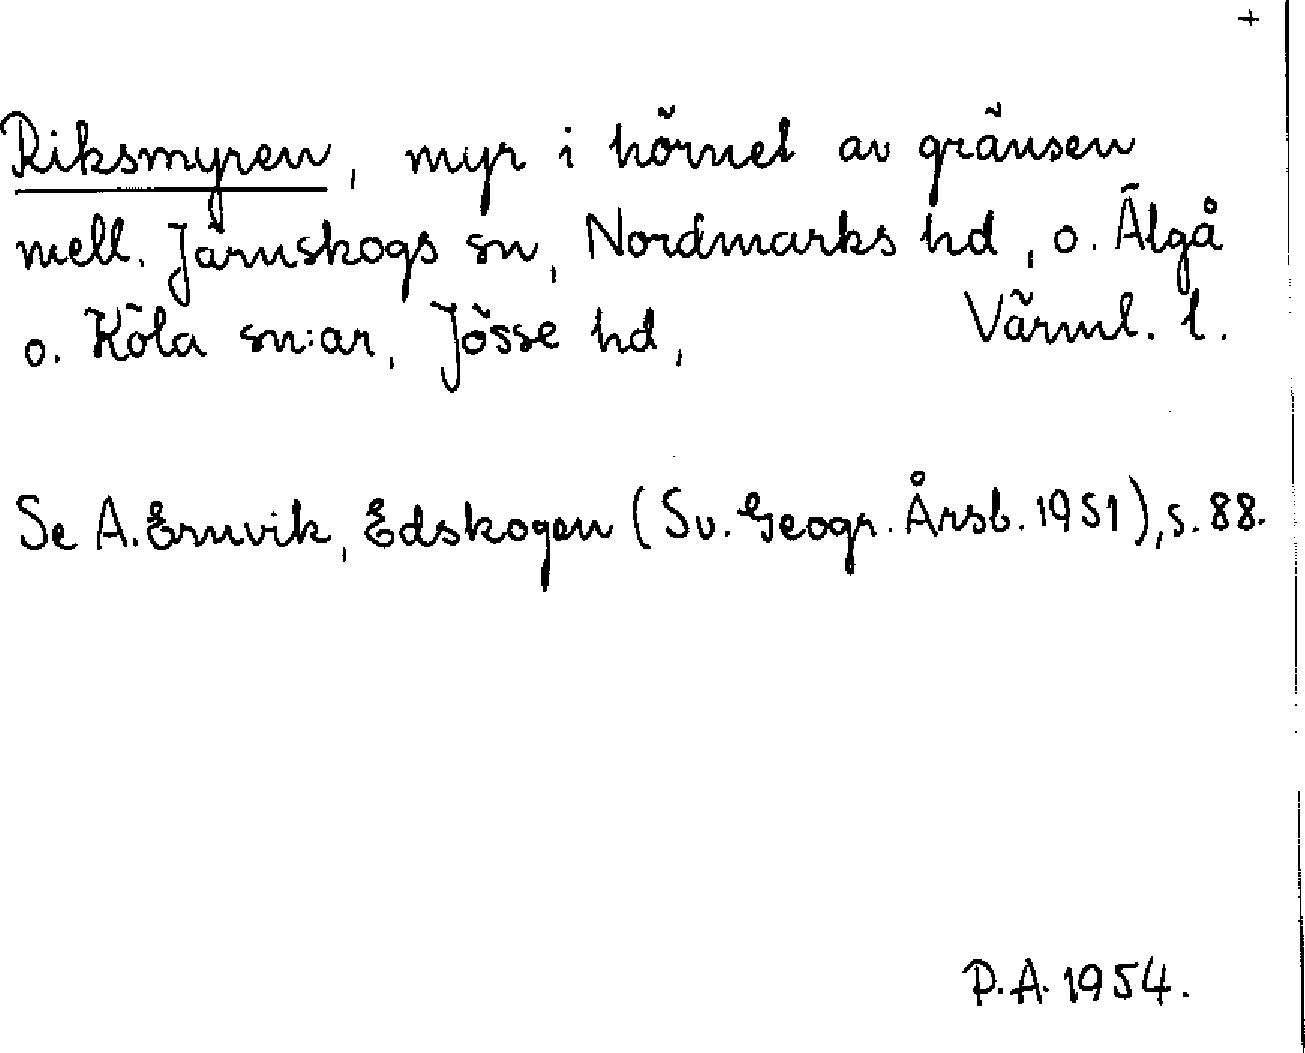 +
Riksmyren, myr i hörnet av gränsen
mell. Järnskogs sn, Nordmarks hd, o. Älgå
o. Köla sn:ar, Jösse hd, Värml. l.
Se A. Ernvik, Edskogen (Sv. Geogr. Årsb. 1951), s. 88.
P.A. 1954.